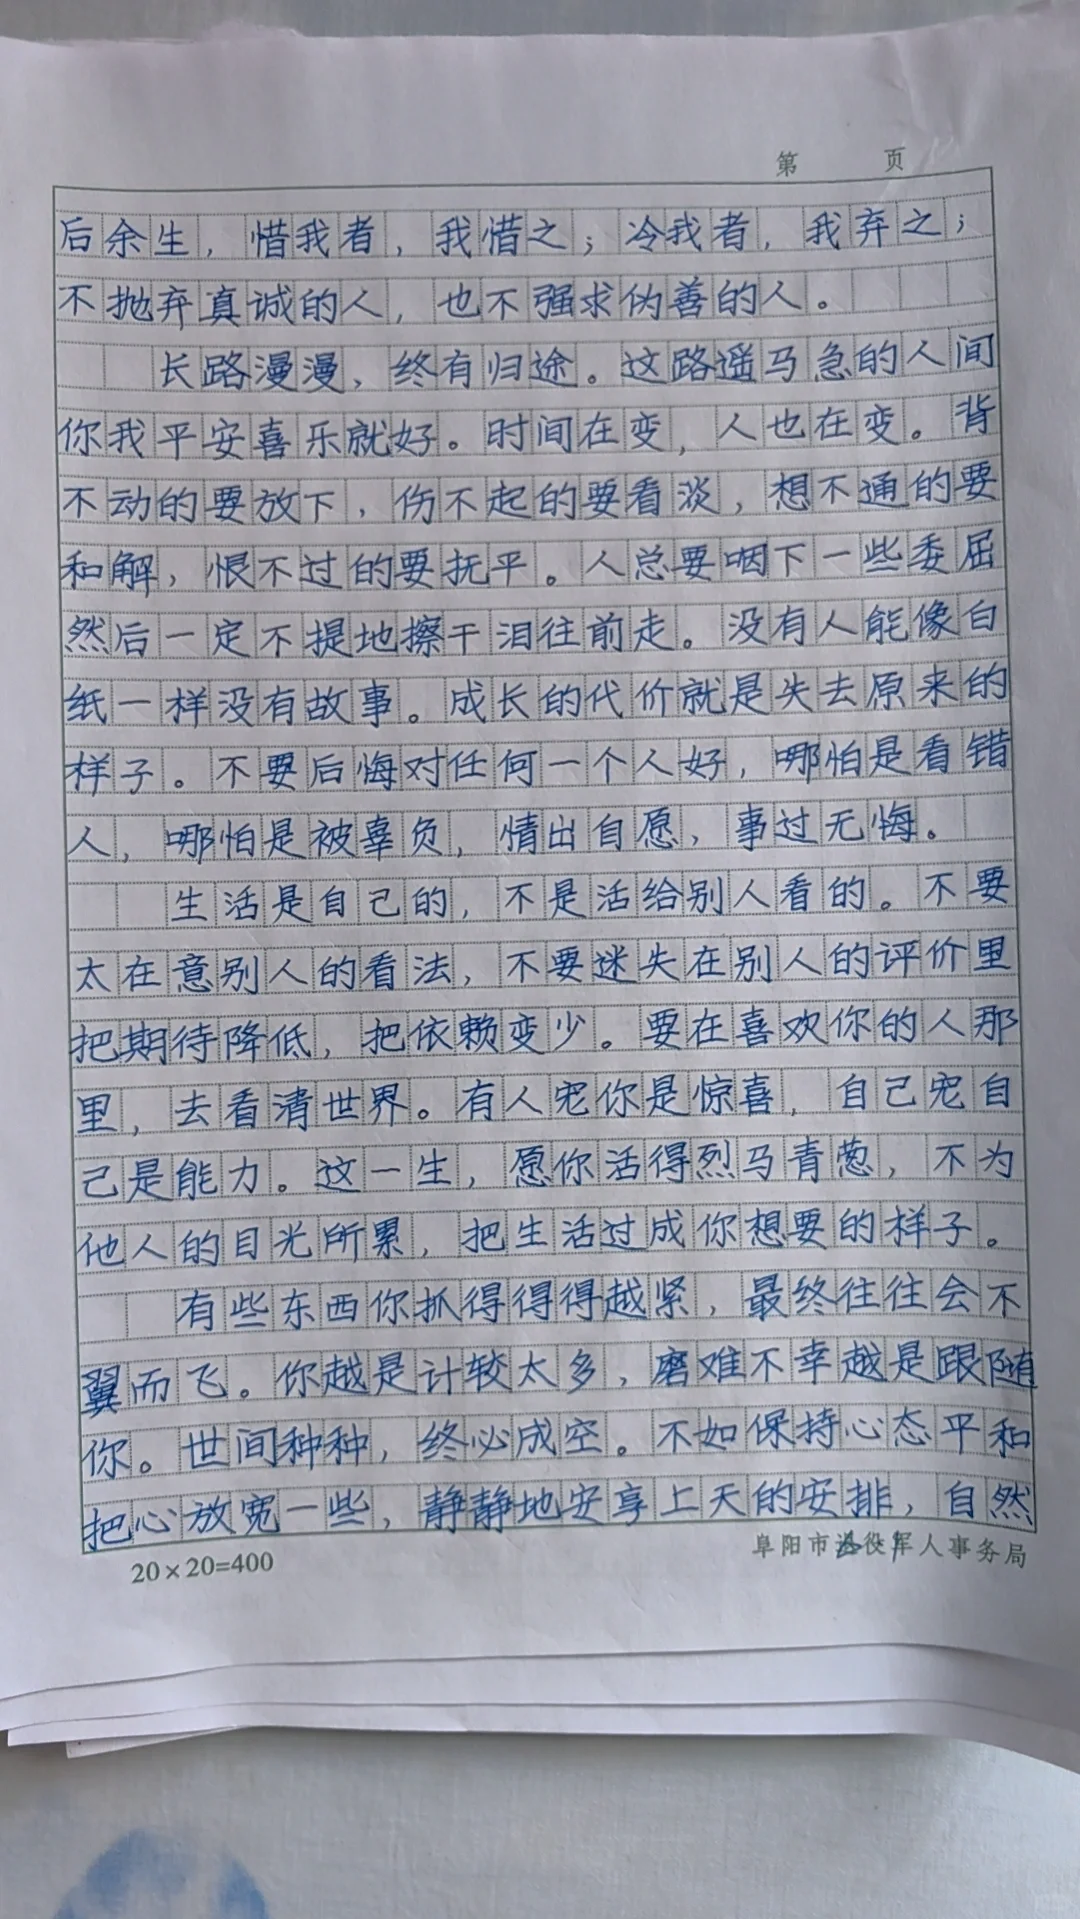 第 页
后余生，惜我者，我惜之；冷我者，我弃之；
不抛弃真诚的人，也不强求伪善的人。
长路漫漫，终有归途。这路遥马急的人间
你我平安喜乐就好。时间在变，人也在变。背
不动的要放下，伤不起的要看淡，想不通的要
和解，恨不过的要抚平。人总要咽下一些委屈
然后一定不提地擦干泪往前走。没有人能像白
纸一样没有故事。成长的代价就是失去原来的
样子。不要后悔对任何一个人好，哪怕是看错
人，哪怕是被辜负，情出自愿，事过无悔。
生活是自己的，不是活给别人看的。不要
太在意别人的看法，不要迷失在别人的评价里
把期待降低，把依赖变少。要在喜欢你的人那
里，去看清世界。有人宠你是惊喜，自己宠自
己是能力。这一生，愿你活得烈马青葱，不为
他人的目光所累，把生活过成你想要的样子。
有些东西你抓得得得越紧，最终往往会不
翼而飞。你越是计较太多，磨难不幸越是跟随
你。世间种种，终必成空。不如保持心态平和
把心放宽一些，静静地安享上天的安排，自然
20×20=400
阜阳市退役军人事务局